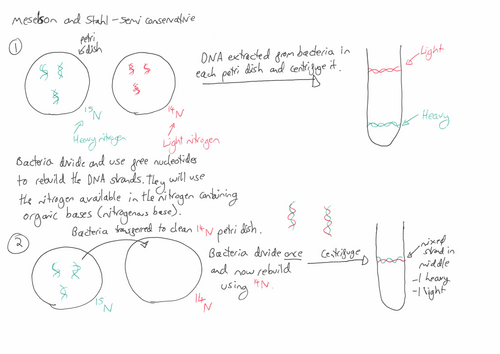 Meselson and Stahl - semi conservative
1
petri
dish
15N
Heavy nitrogen
14N
Light nitrogen
DNA extracted from bacteria in
each petri dish and centrifuge it.
Light
Heavy
Bacteria divide and use free nucleotides
to rebuild the DNA strands. They will use
the nitrogen available in the nitrogen containing
organic bases (nitrogenous base).
2
Bacteria transferred to clean 14N petri dish.
15N
14N
Bacteria divide once
and now rebuild
using 14N.
Centrifuge
mixed
strand in
middle
-1 heavy
-1 light